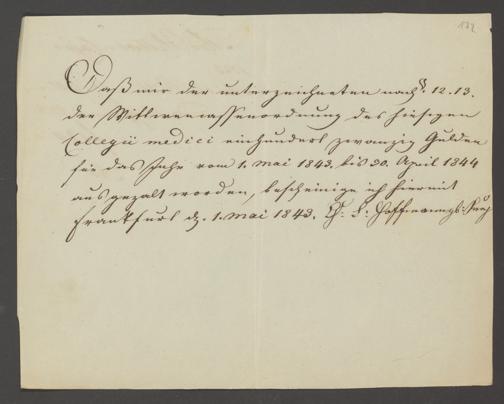 132
Daß mir der unterzeichneten nach §. 12. 13.
der Wittwencassenordnung des hiesigen
Collegii medici einhundert zwanzig Gulden
für das Jahr vom 1. Mai 1843. bis 30. April 1844
ausgezalt worden, bescheinige ich hiermit
Frankfurt d. 1. Mai 1843.